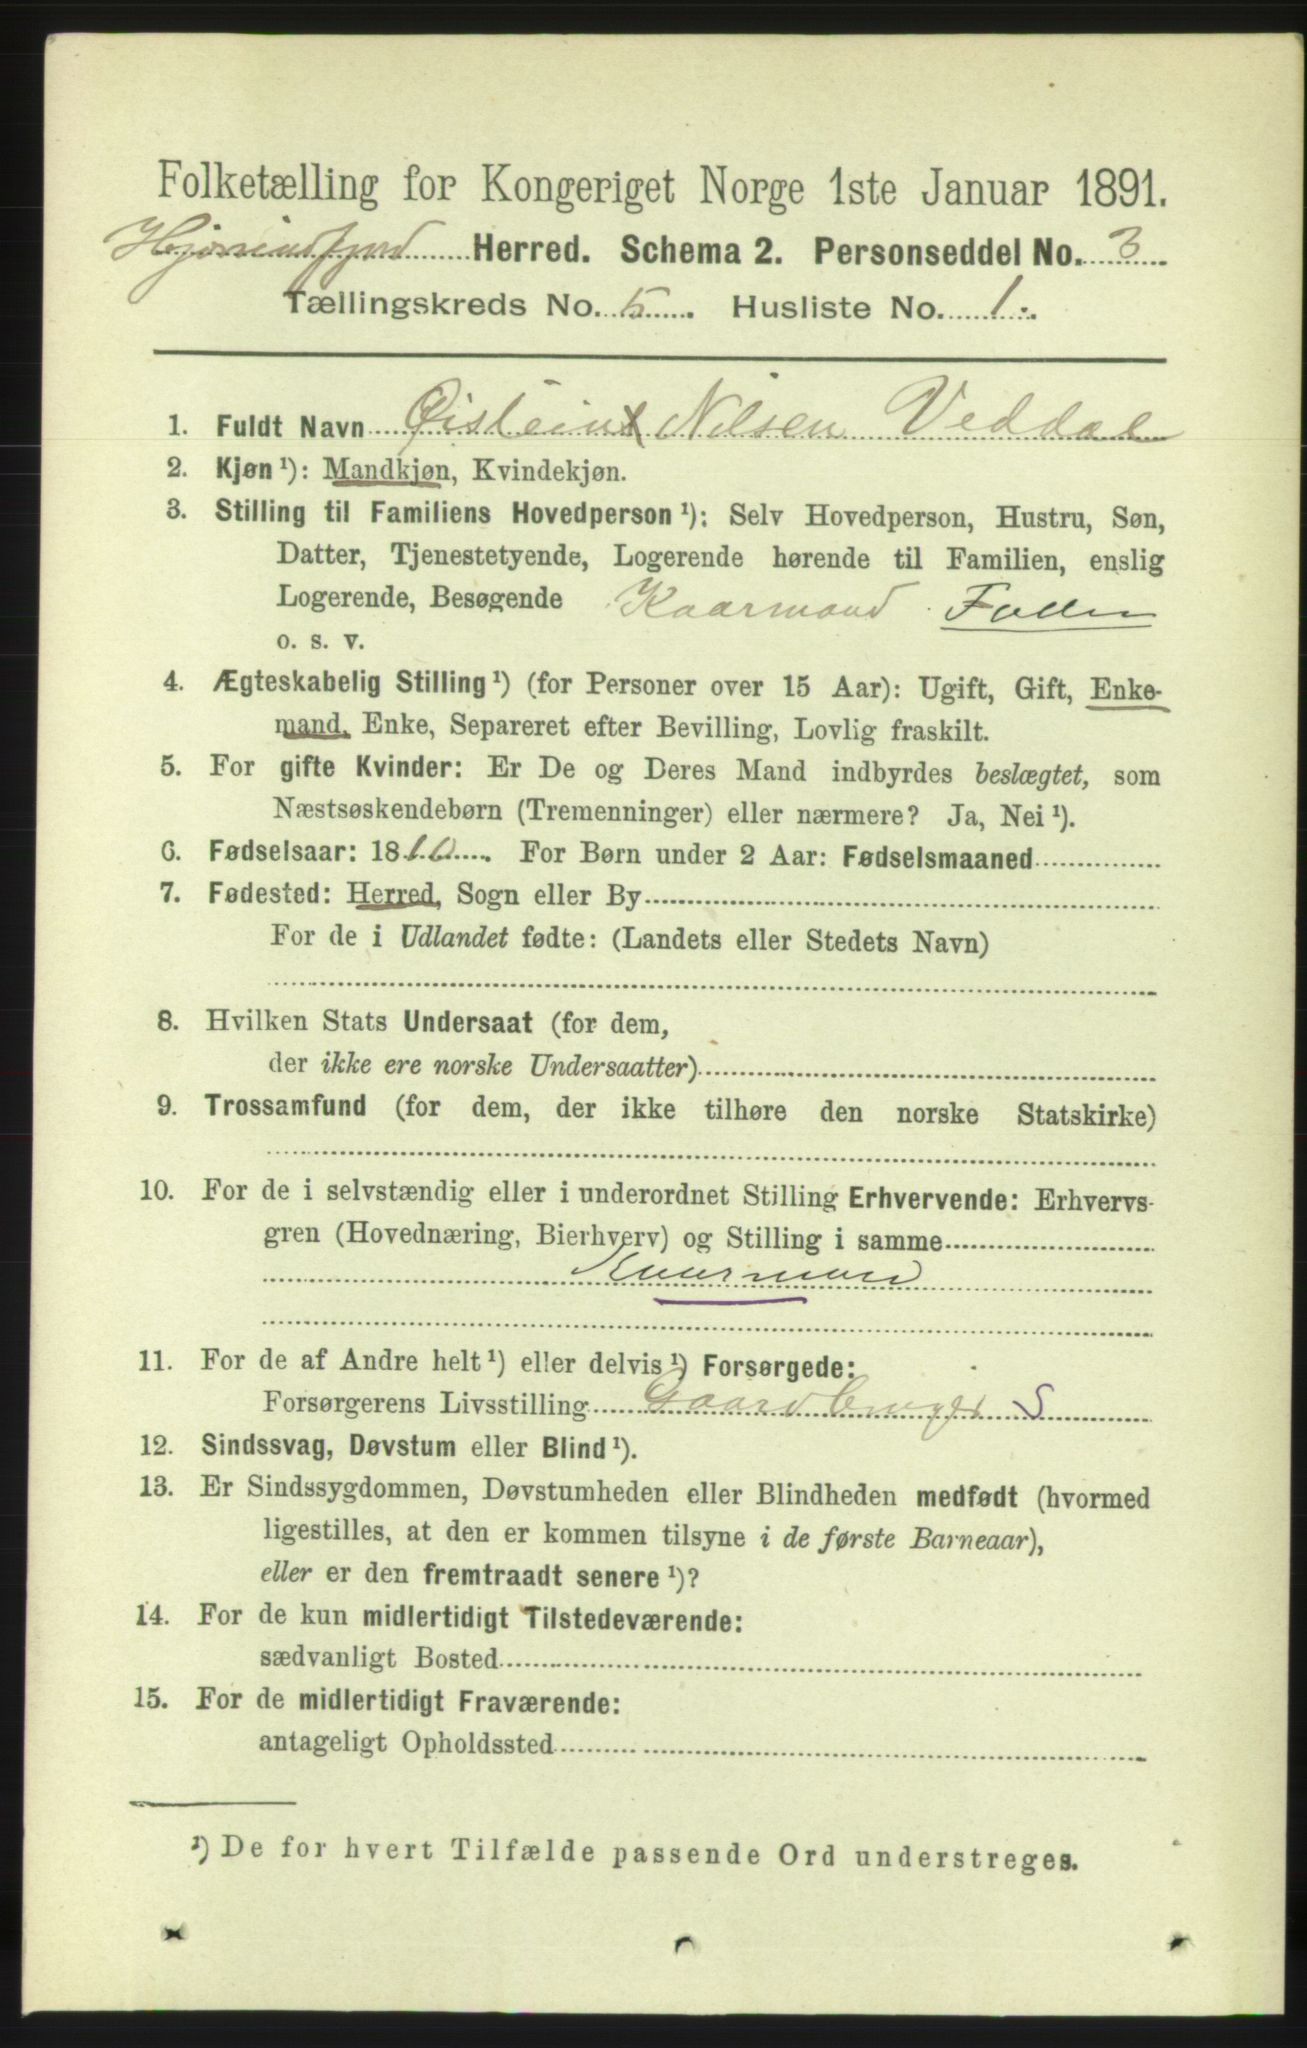 Folketælling for Kongeriget Norge 1ste Januar 1891.
Hjørundfjord Herred. Schema 2. Personseddel No. 3
Tællingskreds No. 5. Husliste No. 1.
1. Fuldt Navn Øistein Nilsen Veddal
2. Kjøn ¹): Mandkjøn, Kvindekjøn.
3. Stilling til Familiens Hovedperson ¹): Selv Hovedperson, Hustru, Søn,
Datter, Tjenestetyende, Logerende hørende til Familien, enslig
Logerende, Besøgende Kaarmand Fader
o. s. v.
4. Ægteskabelig Stilling ¹) (for Personer over 15 Aar): Ugift, Gift, Enke-
mand, Enke, Separeret efter Bevilling, Lovlig fraskilt.
5. For gifte Kvinder: Er De og Deres Mand indbyrdes beslægtet, som
Næstsøskendebørn (Tremenninger) eller nærmere? Ja, Nei ¹).
6. Fødselsaar: 1810. For Børn under 2 Aar: Fødselsmaaned
7. Fødested: Herred, Sogn eller By
For de i Udlandet fødte: (Landets eller Stedets Navn)
8. Hvilken Stats Undersaat (for dem,
der ikke ere norske Undersaatter)
9. Trossamfund (for dem, der ikke tilhøre den norske Statskirke)
10. For de i selvstændig eller i underordnet Stilling Erhvervende: Erhvervs-
gren (Hovednæring, Bierhverv) og Stilling i samme
Kaarmand
11. For de af Andre helt ¹) eller delvis ¹) Forsørgede:
Forsørgerens Livsstilling Gaardbruger S
12. Sindssvag, Døvstum eller Blind ¹).
13. Er Sindssygdommen, Døvstumheden eller Blindheden medfødt (hvormed
ligestilles, at den er kommen tilsyne i de første Barneaar),
eller er den fremtraadt senere ¹)?
14. For de kun midlertidigt Tilstedeværende:
sædvanligt Bosted
15. For de midlertidigt Fraværende:
antageligt Opholdssted
¹) De for hvert Tilfælde passende Ord understreges.